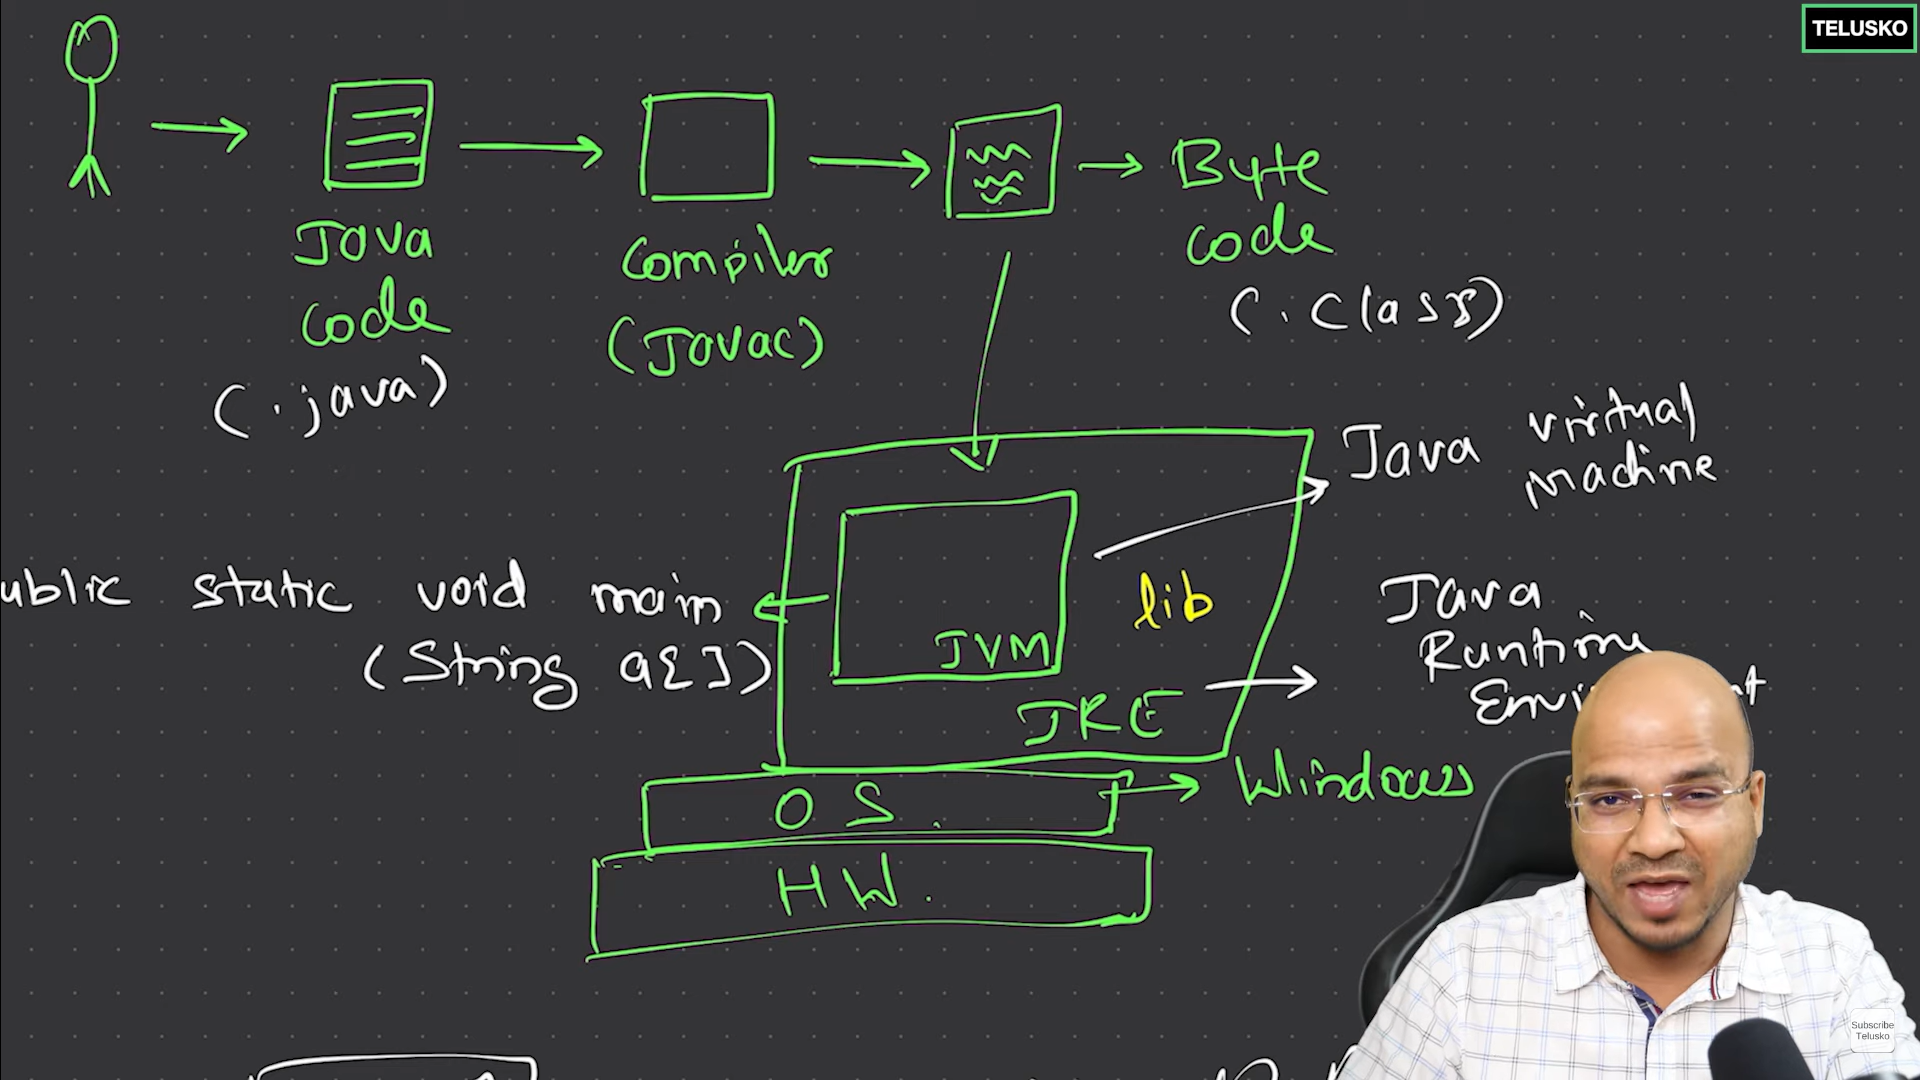 TELUSKO
Java
code
(.java)
Compiler
(Javac)
Byte
code
(.class)
Java virtual
machine
ublic static void main
(String a[])
lib
JVM
Java
Runtime
JRE
OS.
Windows
HW.
Subscribe
Telusko